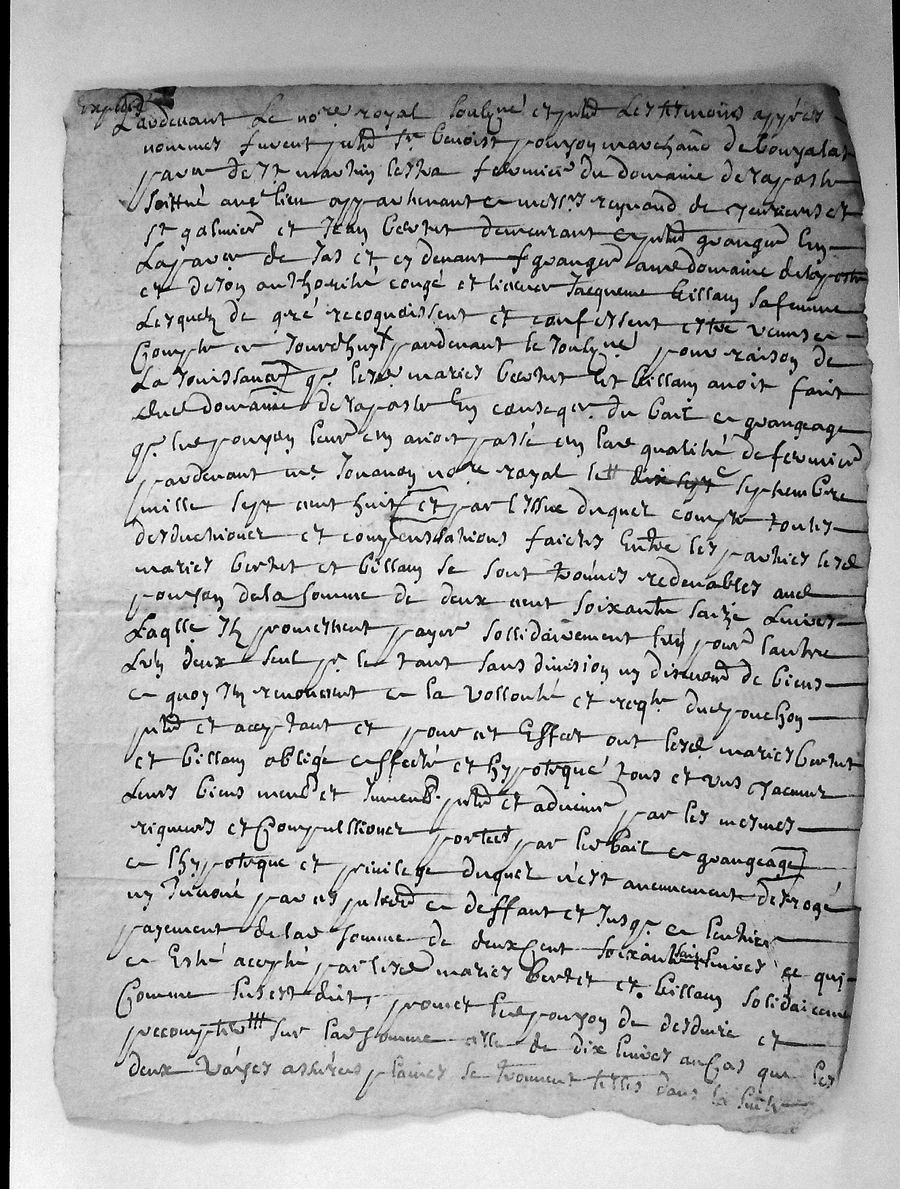 expedié
Pardevant Le no.re royal soulsigné et p.nts Les tesmoins appres
nommes furent p.nts s.r benoist ponson marchand de
par.se de st martin lestra fermier du domaine de
scittué aud. lieu appartenant a mess.rs reynaud de et
st galmier et Jean bertet demeurant a p.nt granger en
La par.se de Jas et cy devant granger aud domaine de
et de son authorité congé et licence Jacqueme billam sa femme
Lesquelz de gré recognoissent et confessent estre venus a
Compte ce Jourd'huy pardevant le soulsigné pour raison de
La Jouissance q. lesd maries bertet et billam avoit fait
dud domaine de en conseq. du bail a grangeage
q. led ponson leur en avoit passé en lad qualité de fermier
pardevant me Jouanon no.re royal le septembre
mille sept cent huit et par l'issue duquel compte toutes
desductiones et compensations faictes Entre les parties lesd
maries bertet et billam se sont trouvés redevables aud
ponson de la somme de deux cent soixante saize Livres
Laqlle Ilz promettent payer sollidairement lun pour lautre
Lun deux seul p.r le tout sans division ny discution de biens
a quoy Ilz renoncent a la vollonté et reqte dud ponchon
p.nt et acceptant et pour cet Effect ont lesd maries bertet
et billam obligé affecté et hypotequé tous et uns chacuns
Leurs biens meub. et Immeub. p.nts et advenir par les mesmes
rigueurs et Compulsiones portees par led bail a grangeage
a lhypoteque et privilege duquel n'est aucunement desrogé
ny Innové par ces p.ntes a deffaut et Jusq. a lentier
payement de lad somme de deux Cent soixante saize livres ce qui
a Esté accepté par lesd maries bertet et billam solidairemt
Comme susest dit, promet led ponson de desduire et
precompter sur lad somme celle de dix livres au Cas que les
deux vaches plaines se trouvent telles dans la suitte